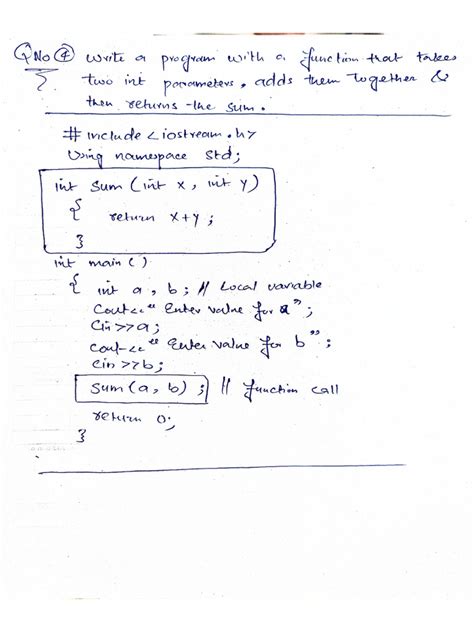 Q No 4 Write a program with a function that takes
two int parameters, adds them together &
then returns the sum.
# include <iostream.h>
Using namespace std;
int Sum (int x, int y)
{ return x+y;
}
int main ( )
{ int a, b; // Local variable
Cout<<" Enter value for a";
Cin>>a;
Cout<<" Enter value for b";
Cin>>b;
Sum(a, b); // function call
return 0;
}